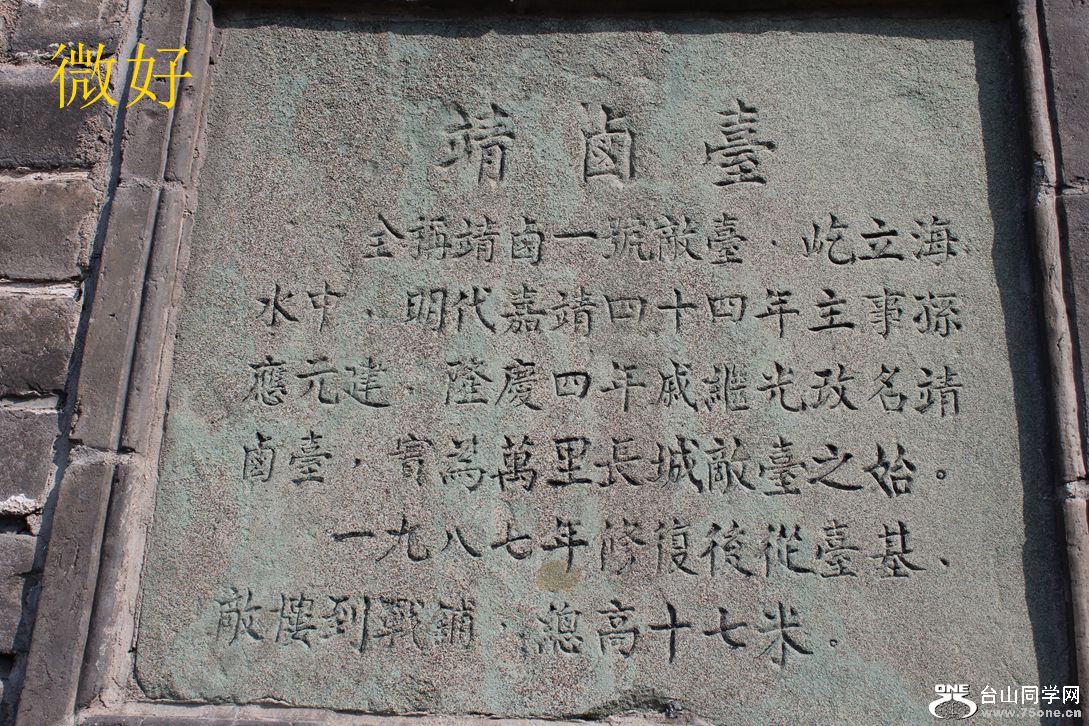 微好
靖鹵臺
全稱靖鹵一號敵臺，屹立海
水中，明代嘉靖四十四年主事孫
應元建，隆慶四年戚繼光改名靖
鹵臺，實為萬里長城敵臺之始。
一九八七年修復後從臺基、
敵樓到戰鋪，總高十七米。
ONE 台山同学网
www.75one.cn